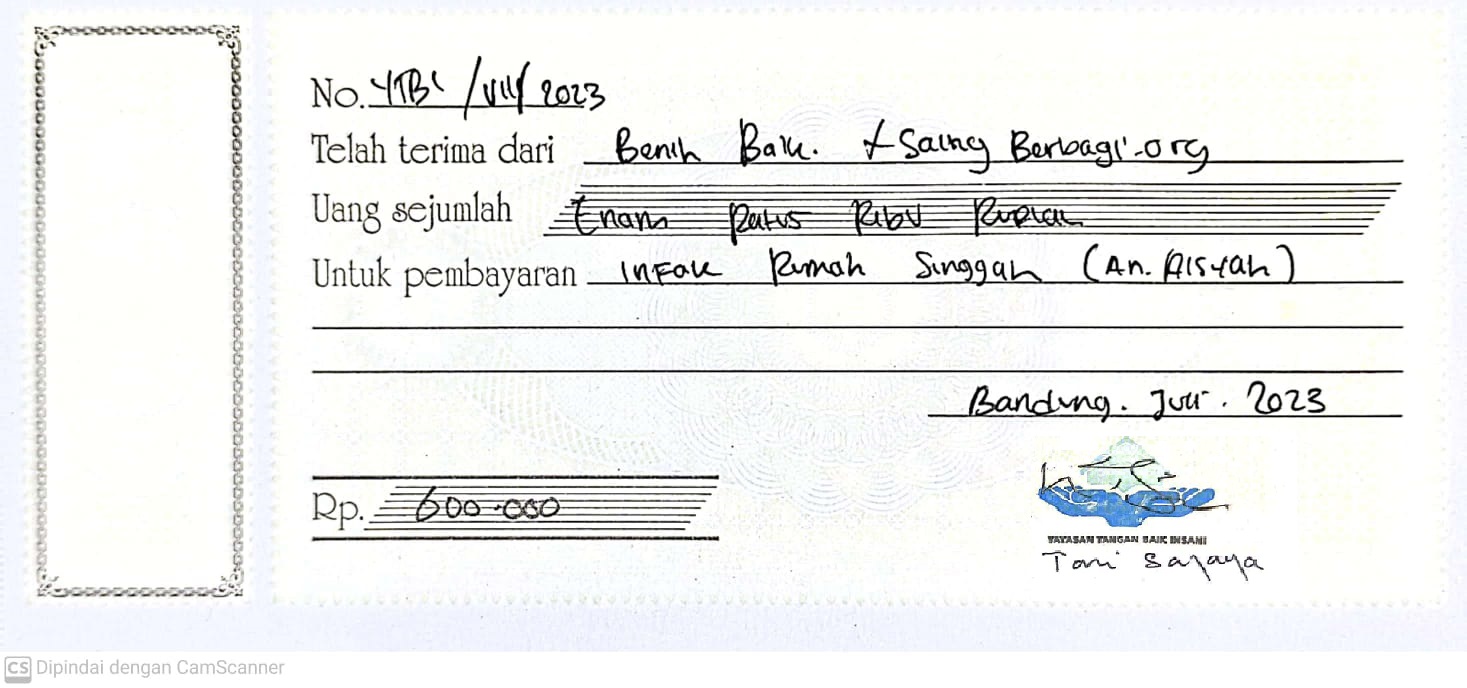 No. YTBI /VII/ 2023
Telah terima dari Benih Baik. + Saling Berbagi.org
Uang sejumlah Enam Ratus Ribu Rupiah
Untuk pembayaran Infak Rumah Singgah (An. Aisyah)
Bandung. Juli. 2023
Rp. 600.000
YAYASAN TANGAN BAIK INSANI
Toni Sanjaya
CS Dipindai dengan CamScanner